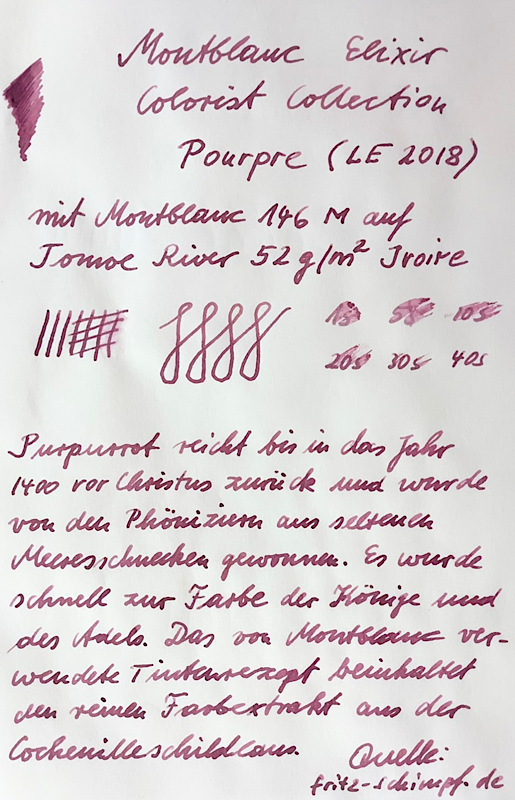 Montblanc Elixir
Colorist Collection
Pourpre (LE 2018)
mit Montblanc 146 M auf
Tomoe River 52 g/m² Ivoire
1s 5s 10s
20s 30s 40s
Purpurrot reicht bis in das Jahr
1400 vor Christus zurück und wurde
von den Phöniziern aus seltenen
Meeresschnecken gewonnen. Es wurde
schnell zur Farbe der Könige und
des Adels. Das von Montblanc ver-
wendete Tintenrezept beinhaltet
den reinen Farbextrakt aus der
Cochenilleschildlaus.
Quelle:
fritz-schimpf.de